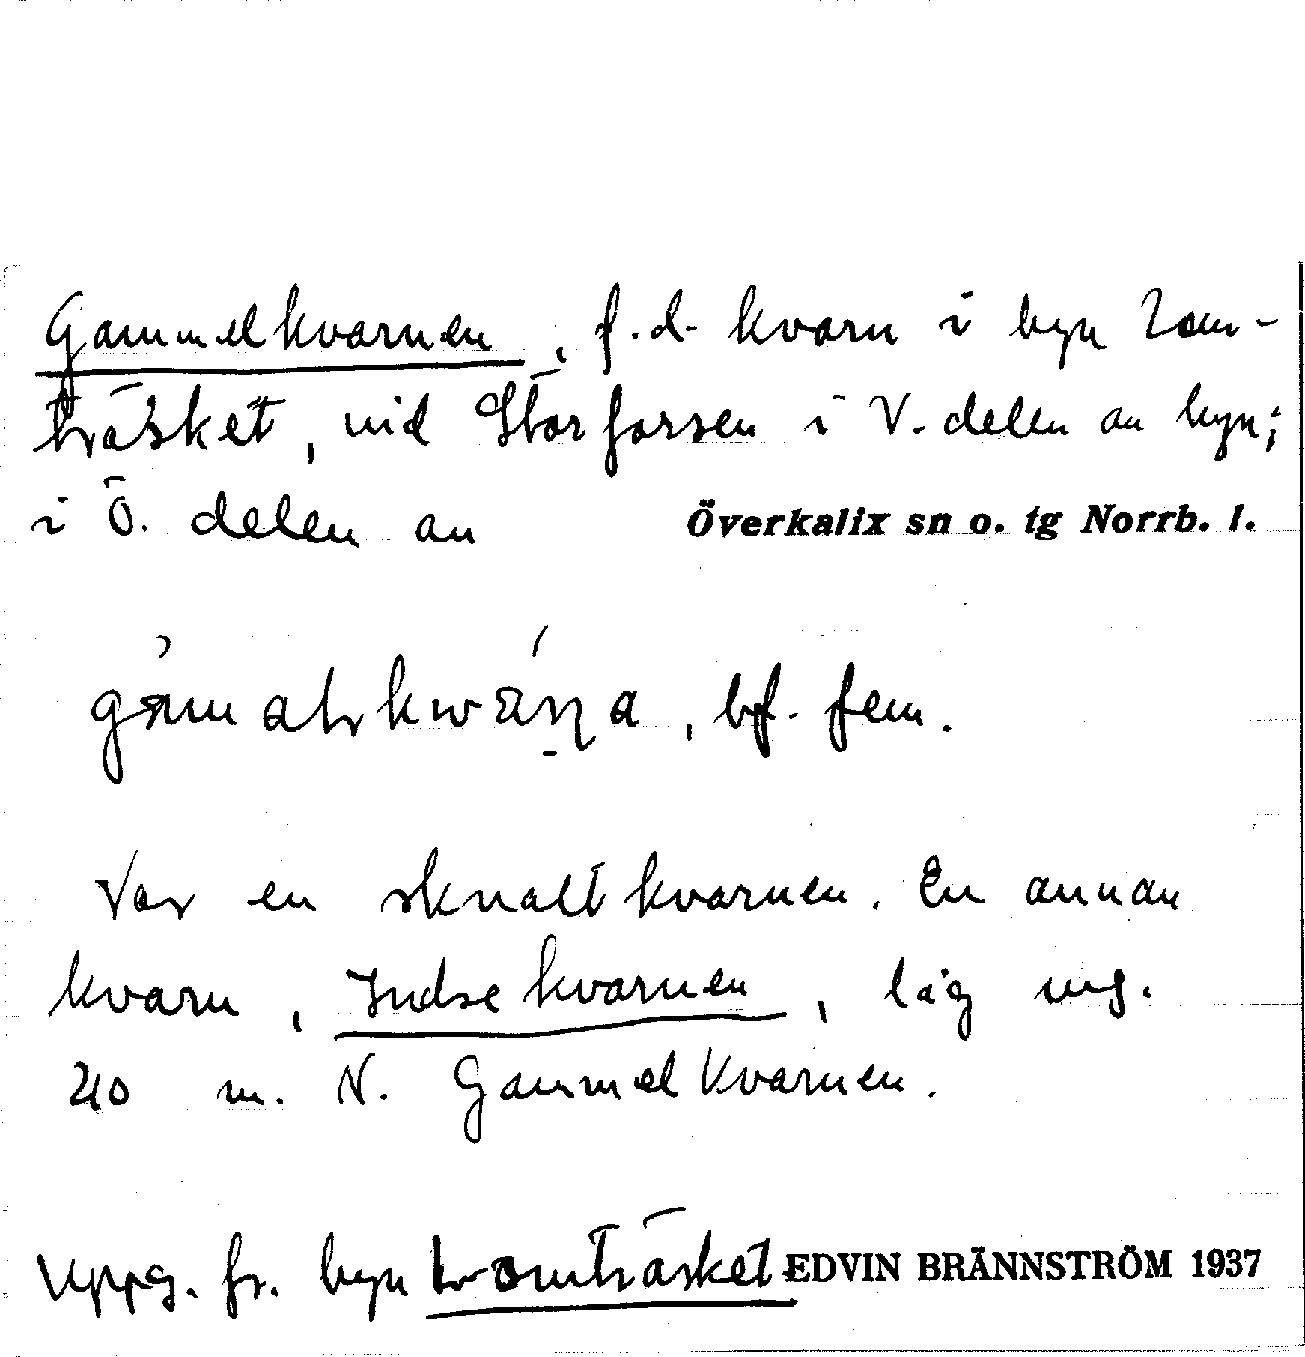 Gammelkvarnen, f.d. kvarn i byn Lom-
träsket, vid Storforsen i V. delen av byn;
i Ö. delen av Överkalix sn o. tg Norrb. l.
bf. fem.
Var en skvaltkvarnen. En annan
kvarn, Indsekvarnen, låg ung.
40 m. N. Gammelkvarnen.
Uppg. fr. byn Lomträsket EDVIN BRÄNNSTRÖM 1937